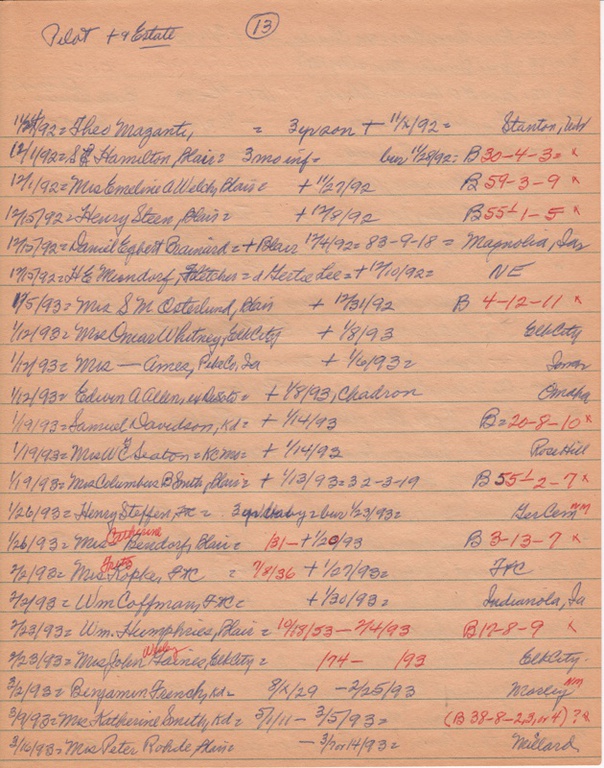 Pilot + & Estate
13
11/24/92 = Theo Maganti, = 3 yr son + 11/x/92 = Stanton, Neb
12/1/92 = S E Hamilton, Blair = 3 mo inf = bur 11/28/92 = B 30-4-3 = x
12/1/92 = Mrs Emeline A Welch, Blair = + 11/27/92 B 59-3-9 x
12/15/92 = Henry Steen, Blair = + 12/8/92 B 55½ 1-5 x
12/15/92 = Daniel Egbert Brainard = + Blair 12/4/92 = 83-9-18 = Magnolia, Ia
12/15/92 = H E Miendorf, Fletcher = d Gertie Lee = + 12/10/92 = NE
1/5/93 = Mrs S M Osterlund, Blair + 12/31/92 B 4-12-11 x
1/12/93 = Mrs Omar Whitney, Elk City + 1/8/93 Elk City
1/12/93 = Mrs — Ames, Ia + 1/6/93 = Iowa
1/12/93 = Edwin A Allen, ex Desoto = + 1/8/93, Chadron Omaha
1/19/93 = Samuel Davidson, Kd = + 1/14/93 B = 20-8-10 x
1/19/93 = Mrs W E Seaton = KC Mo = + 1/14/93 Rose Hill
1/19/93 = Mrs Columbus B Smith, Blair = + 1/13/93 = 32-3-19 B 55½-2-7 x
1/26/93 = Henry Steffen, FC = 3 yr baby = bur 1/23/93 = Ger Cem nm
1/26/93 = Mrs Catherine Bendorf, Blair = /31 - + 1/20/93 B 3-13-7 x
2/2/93 = Mrs Kopke, FtC = 7/8/36 + 1/27/93 = FtC
2/2/93 = Wm Coffman, FtC = + 1/30/93 = Indianola, Ia
2/23/93 = Wm. Humphries, Blair = 10/18/53 - 2/4/93 B 17-8-9 x
2/23/93 = Mrs John Gaines, Elk City = /74 - /93 Elk City.
3/2/93 = Benjamin French, Kd = 8/x/29 - 2/25/93 Morley nm
3/9/93 = Mrs Katherine Smith, Kd = 5/1/11 - 3/5/93 = (B 38-8-2, 3, or 4) ? x
3/16/93 = Mrs Peter Rohde, Blair = - 3/7 or 14/93 = Millard